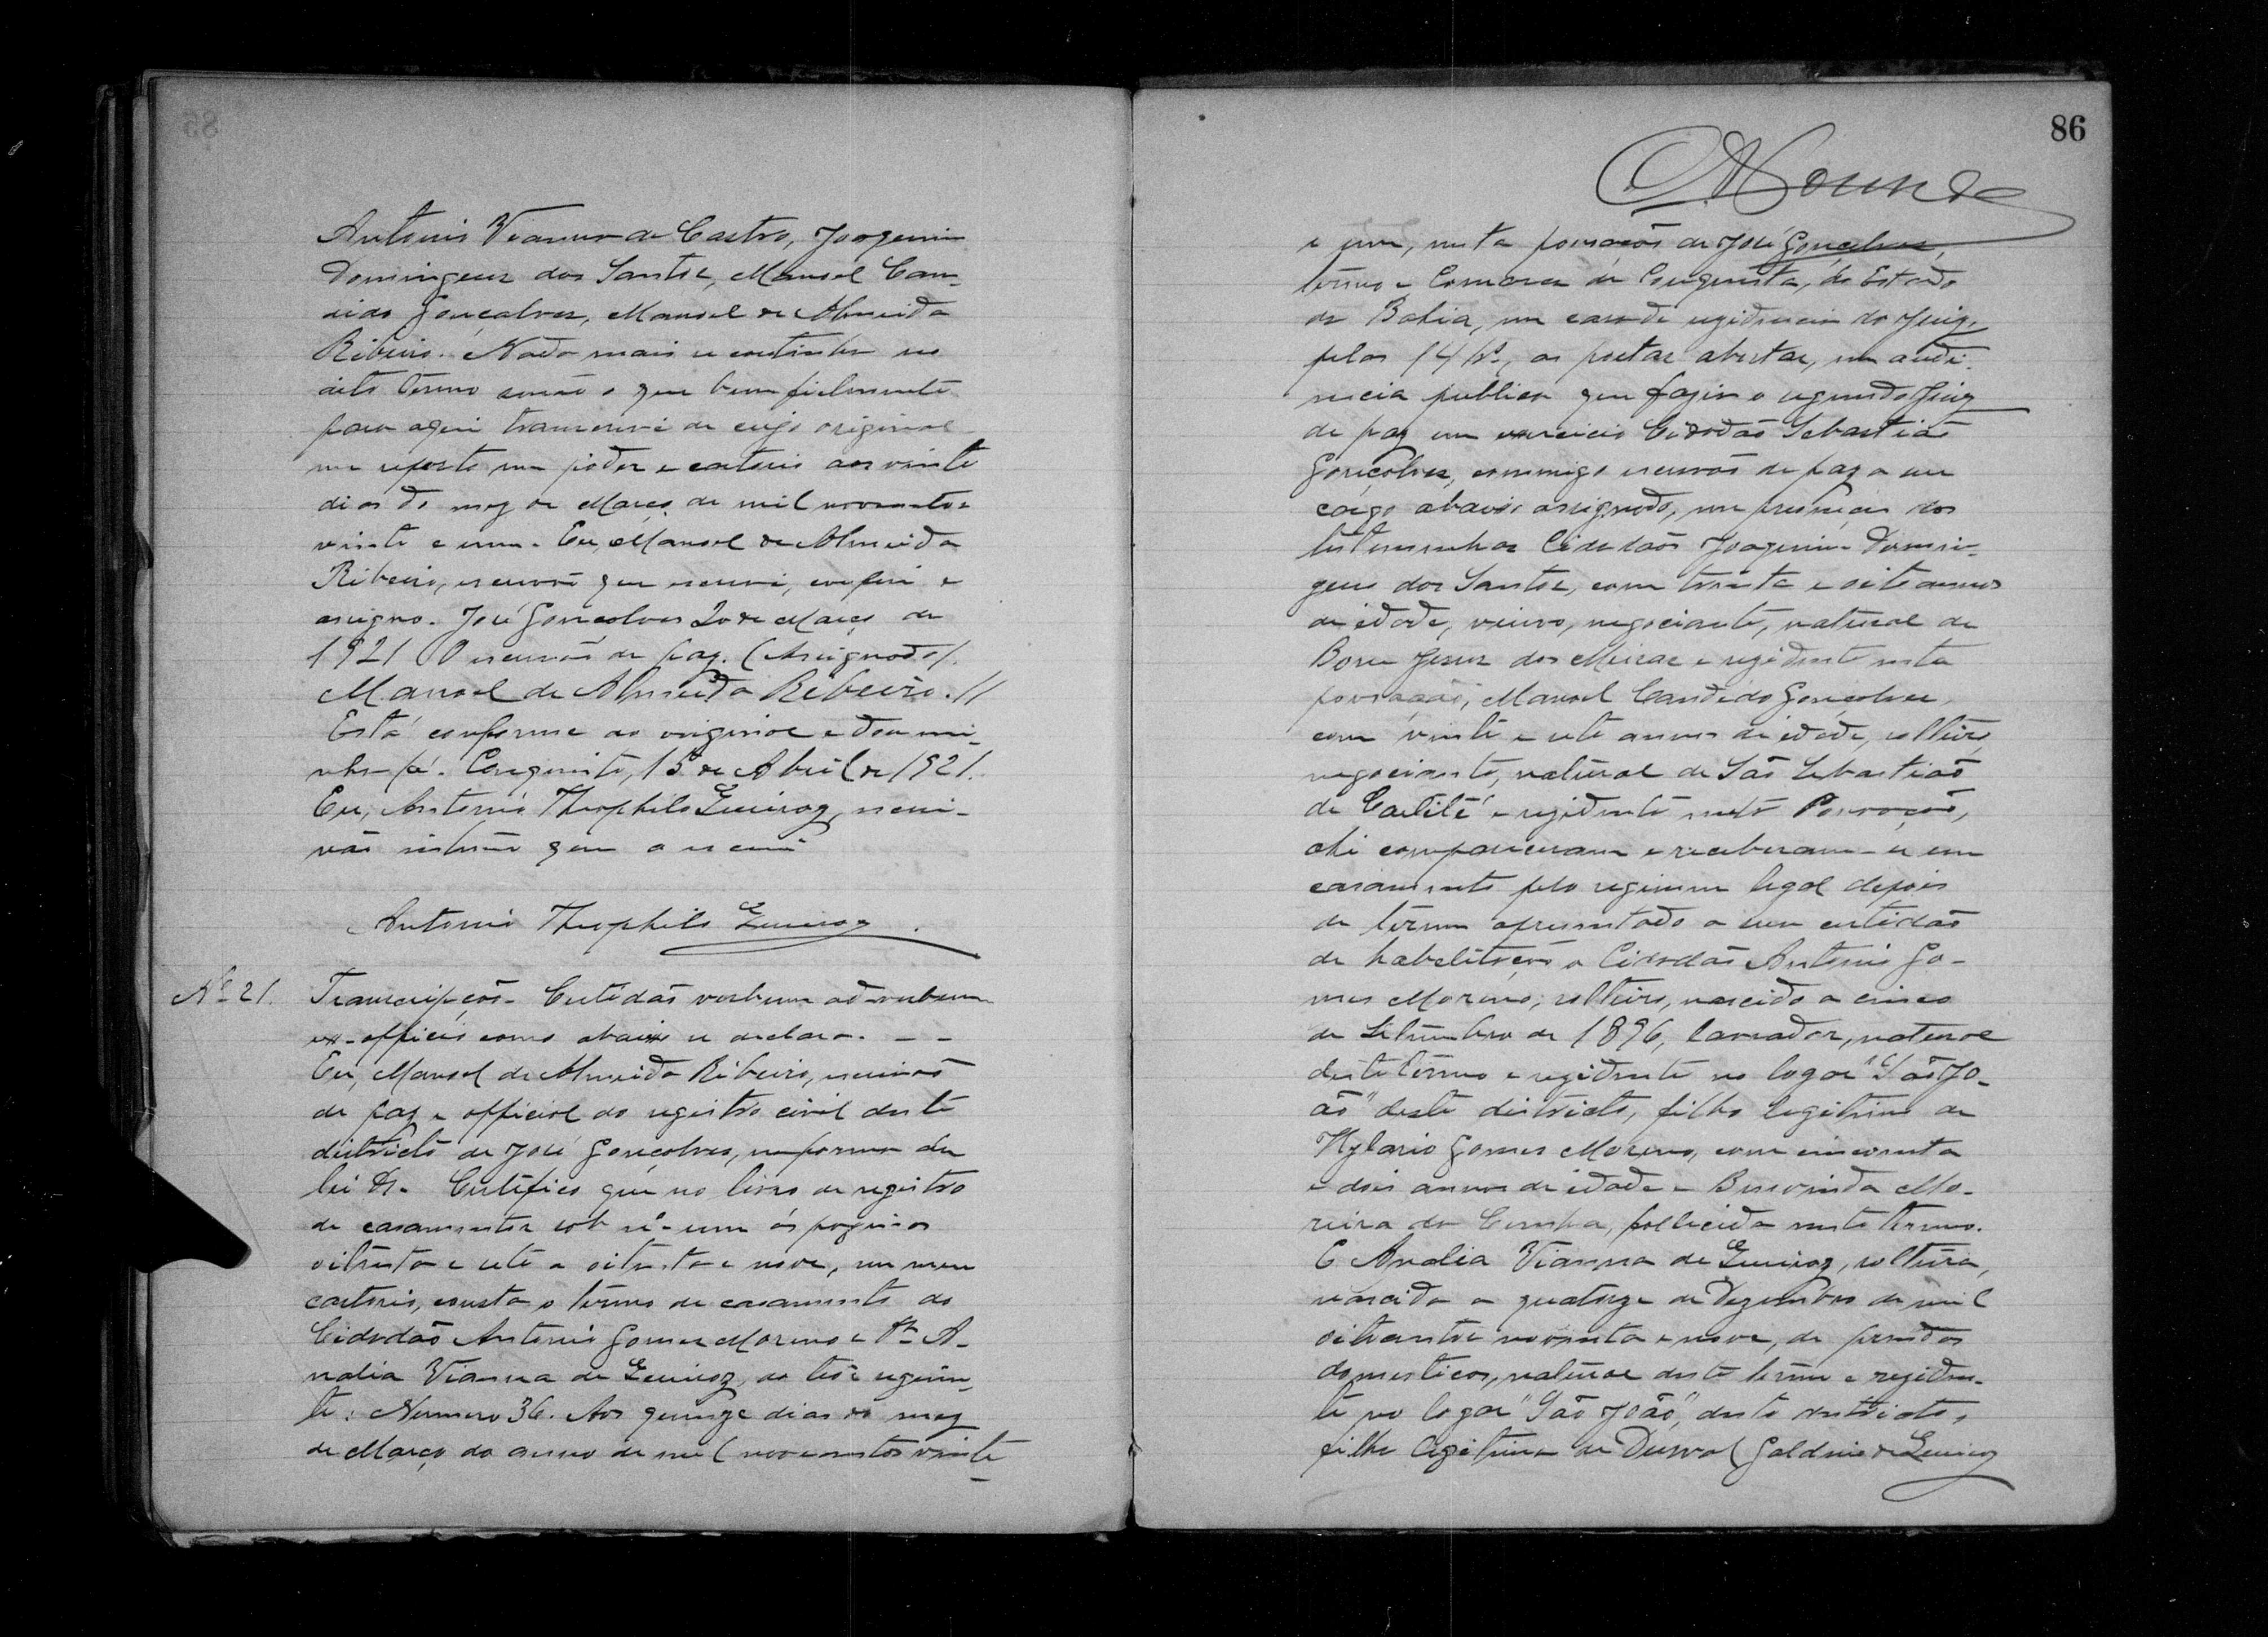 Antonio Vianna de Castro, Joaquim
Domingues dos Santos, Manoel Can-
dido Gonçalves, Manoel de Almeida
Ribeiro. Nada mais se continha no
dito termo senão o que bem fielmente
para aqui transcrevi de cujo original
me reporto, em poder e cartorio aos vinte
dias do mez de Março de mil novecentos
vinte e um. Eu, Manoel de Almeida
Ribeiro, escrivão que escrevi, conferi e
assigno. José Gonçalves 20 de Março de
1921 O escrivão de paz. (Assignado).
Manoel de Almeida Ribeiro. //
Está conforme ao original e dou mi-
nha fé. Conquista, 15 de Abril de 1921.
Eu, Antonio Theophilo Queiroz, escri-
vão interino que o escrevi
Antonio Theophilo Queiroz.
Nº 21. Transcripção. Certidão verbum ad verbum
ex-officio como abaixo se declara. - -
Eu, Manoel de Almeida Ribeiro, escrivão
de paz e official do registro civil deste
districto de José Gonçalves, na forma da
lei &. Certifico que no livro de registro
de casamentos sob nº um ás paginas
oitenta e sete a oitenta e nove, em meu
cartorio, consta o termo de casamento do
Cidadão Antonio Gomes Moreno e Dª A-
nalia Vianna de Queiroz, do teôr seguin-
te: Numero 36. Aos quinze dias do mez
de Março do anno de mil novecentos vinte
86
e um, nesta povoação de José Gonçalves,
termo e Comarca de Conquista, do Estado
da Bahia, em casa de rezidencia do Juiz,
pelas 14 hs, as portas abertas, em audi-
encia publica que fazia o segundo Juiz
de paz em exercicio Cidadão Sebastião
Gonçalves, commigo escrivão de paz a seu
cargo abaixo assignado, em presença das
testemunhas Cidadãos Joaquim Domin-
gues dos Santos, com trinta e oito annos
de idade, viuvo, negociante, natural de
Bom Jesus dos Meiras e rezidente nesta
povoação; Manoel Candido Gonçalves,
com vinte e sete annos de idade, solteiro,
negociante, natural de São Sebastião
de Caetité e rezidente nesta Povoação,
ahi compareceram e receberam-se em
casamento pelo regimem legal depois
de terem apresentado a sua certidão
de habelitação o Cidadão Antonio Go-
mes Moreno, solteiro, nascido a cinco
de Setembro de 1896, lavrador, natural
deste termo e rezidente no logar "São Jo-
ão" deste districto, filho legitimo de
Hylario Gomes Moreno, com cincoenta
e dois annos de idade e Mo-
reira da Cunha, fallecida neste termo.
E Analia Vianna de Queiroz, solteira,
nascida a quatorze de Dezembro de mil
oitocentos noventa e nove, de prendas
domesticas, natural deste termo e reziden-
te no logar "São João", deste districto,
filha legitima de Durval Galdino de Queiroz